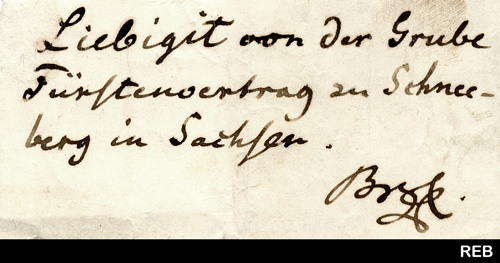 Liebigit von der Grube
Fürstenvertrag zu Schnee-
berg in Sachsen.
REB